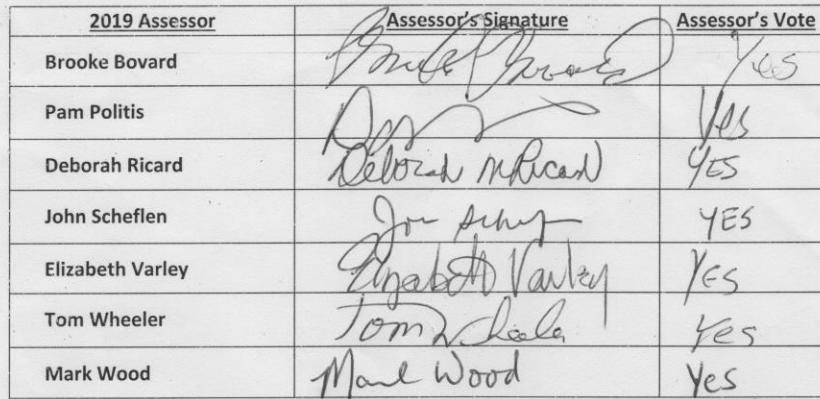 2019 Assessor Assessor's Signature Assessor's Vote
Brooke Bovard Yes
Pam Politis Yes
Deborah Ricard Deborah M Ricard YES
John Scheflen YES
Elizabeth Varley Elizabeth Varley YES
Tom Wheeler Tom Wheeler Yes
Mark Wood Mark Wood Yes